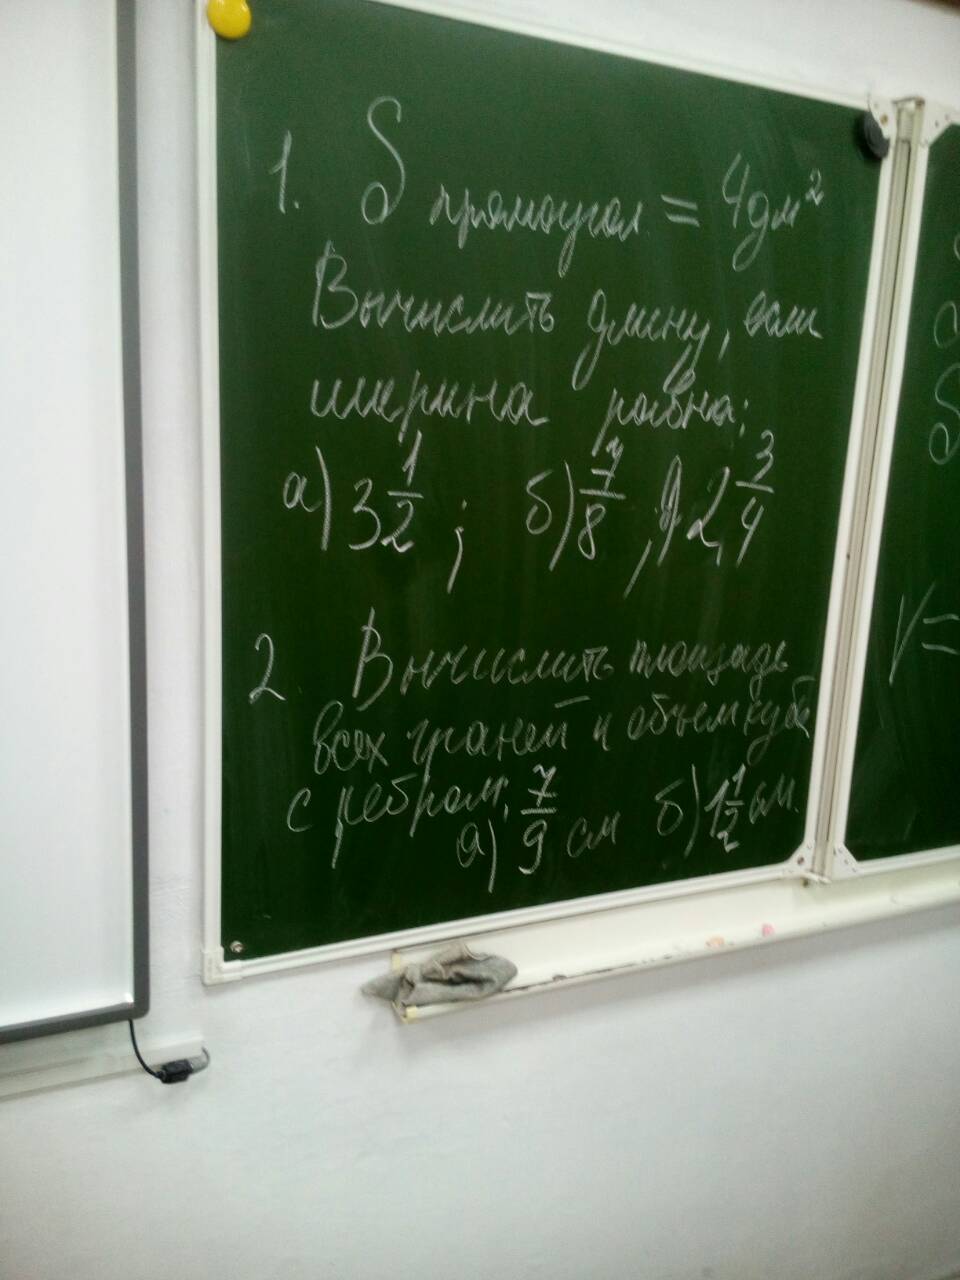 1. S прямоугол. = 4 дм²
Вычислить длину, если
ширина равна:
а) 3 1/2 ; б) 7/8 ; в) 2 3/4
2 Вычислить площадь
всех граней и объем куба
с ребром:
а) 7/9 см б) 1 1/2 см.
V =